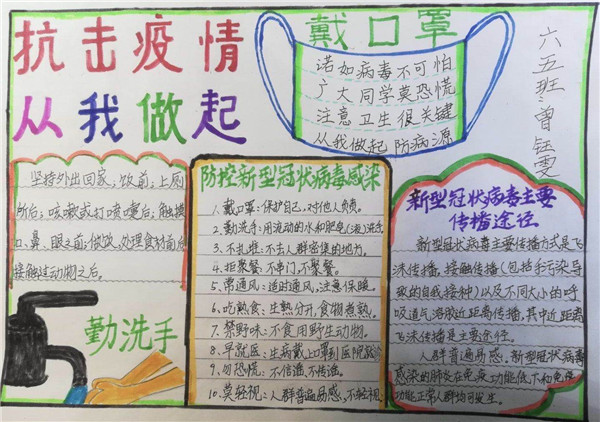 抗击疫情
从我做起
戴口罩
诺如病毒不可怕
广大同学莫恐慌
注意卫生很关键
从我做起 防病源
六五班:曾钰雯
坚持外出回家,饭前,上厕
所后,咳嗽或打喷嚏后,触摸
口、鼻、眼之前,做饭,处理食材前后
接触过动物之后。
勤洗手
防控新型冠状病毒感染
1、戴口罩:保护自己,对他人负责。
2、勤洗手:用流动的水和肥皂(液)洗手
3、不扎堆:不去人群密集的地方。
4、拒聚餐:不串门,不聚餐。
5、常通风:适时通风,注意保暖。
6、吃熟食:生熟分开,食物煮熟。
7、禁野味:不食用野生动物。
8、早就医:生病戴上口罩到医院就诊
9、勿恐慌:不信谣,不传谣。
10、莫轻视:人群普遍易感,不轻视
新型冠状病毒主要
传播途径
新型冠状病毒主要传播方式是飞
沫传播,接触传播(包括手污染导
致的自我接种)以及不同大小的呼
吸道气溶胶近距离传播,其中近距离
飞沫传播是主要途径。
人群普遍易感,新型冠状病毒
感染的肺炎在免疫功能低下和免疫
功能正常人群均可发生。